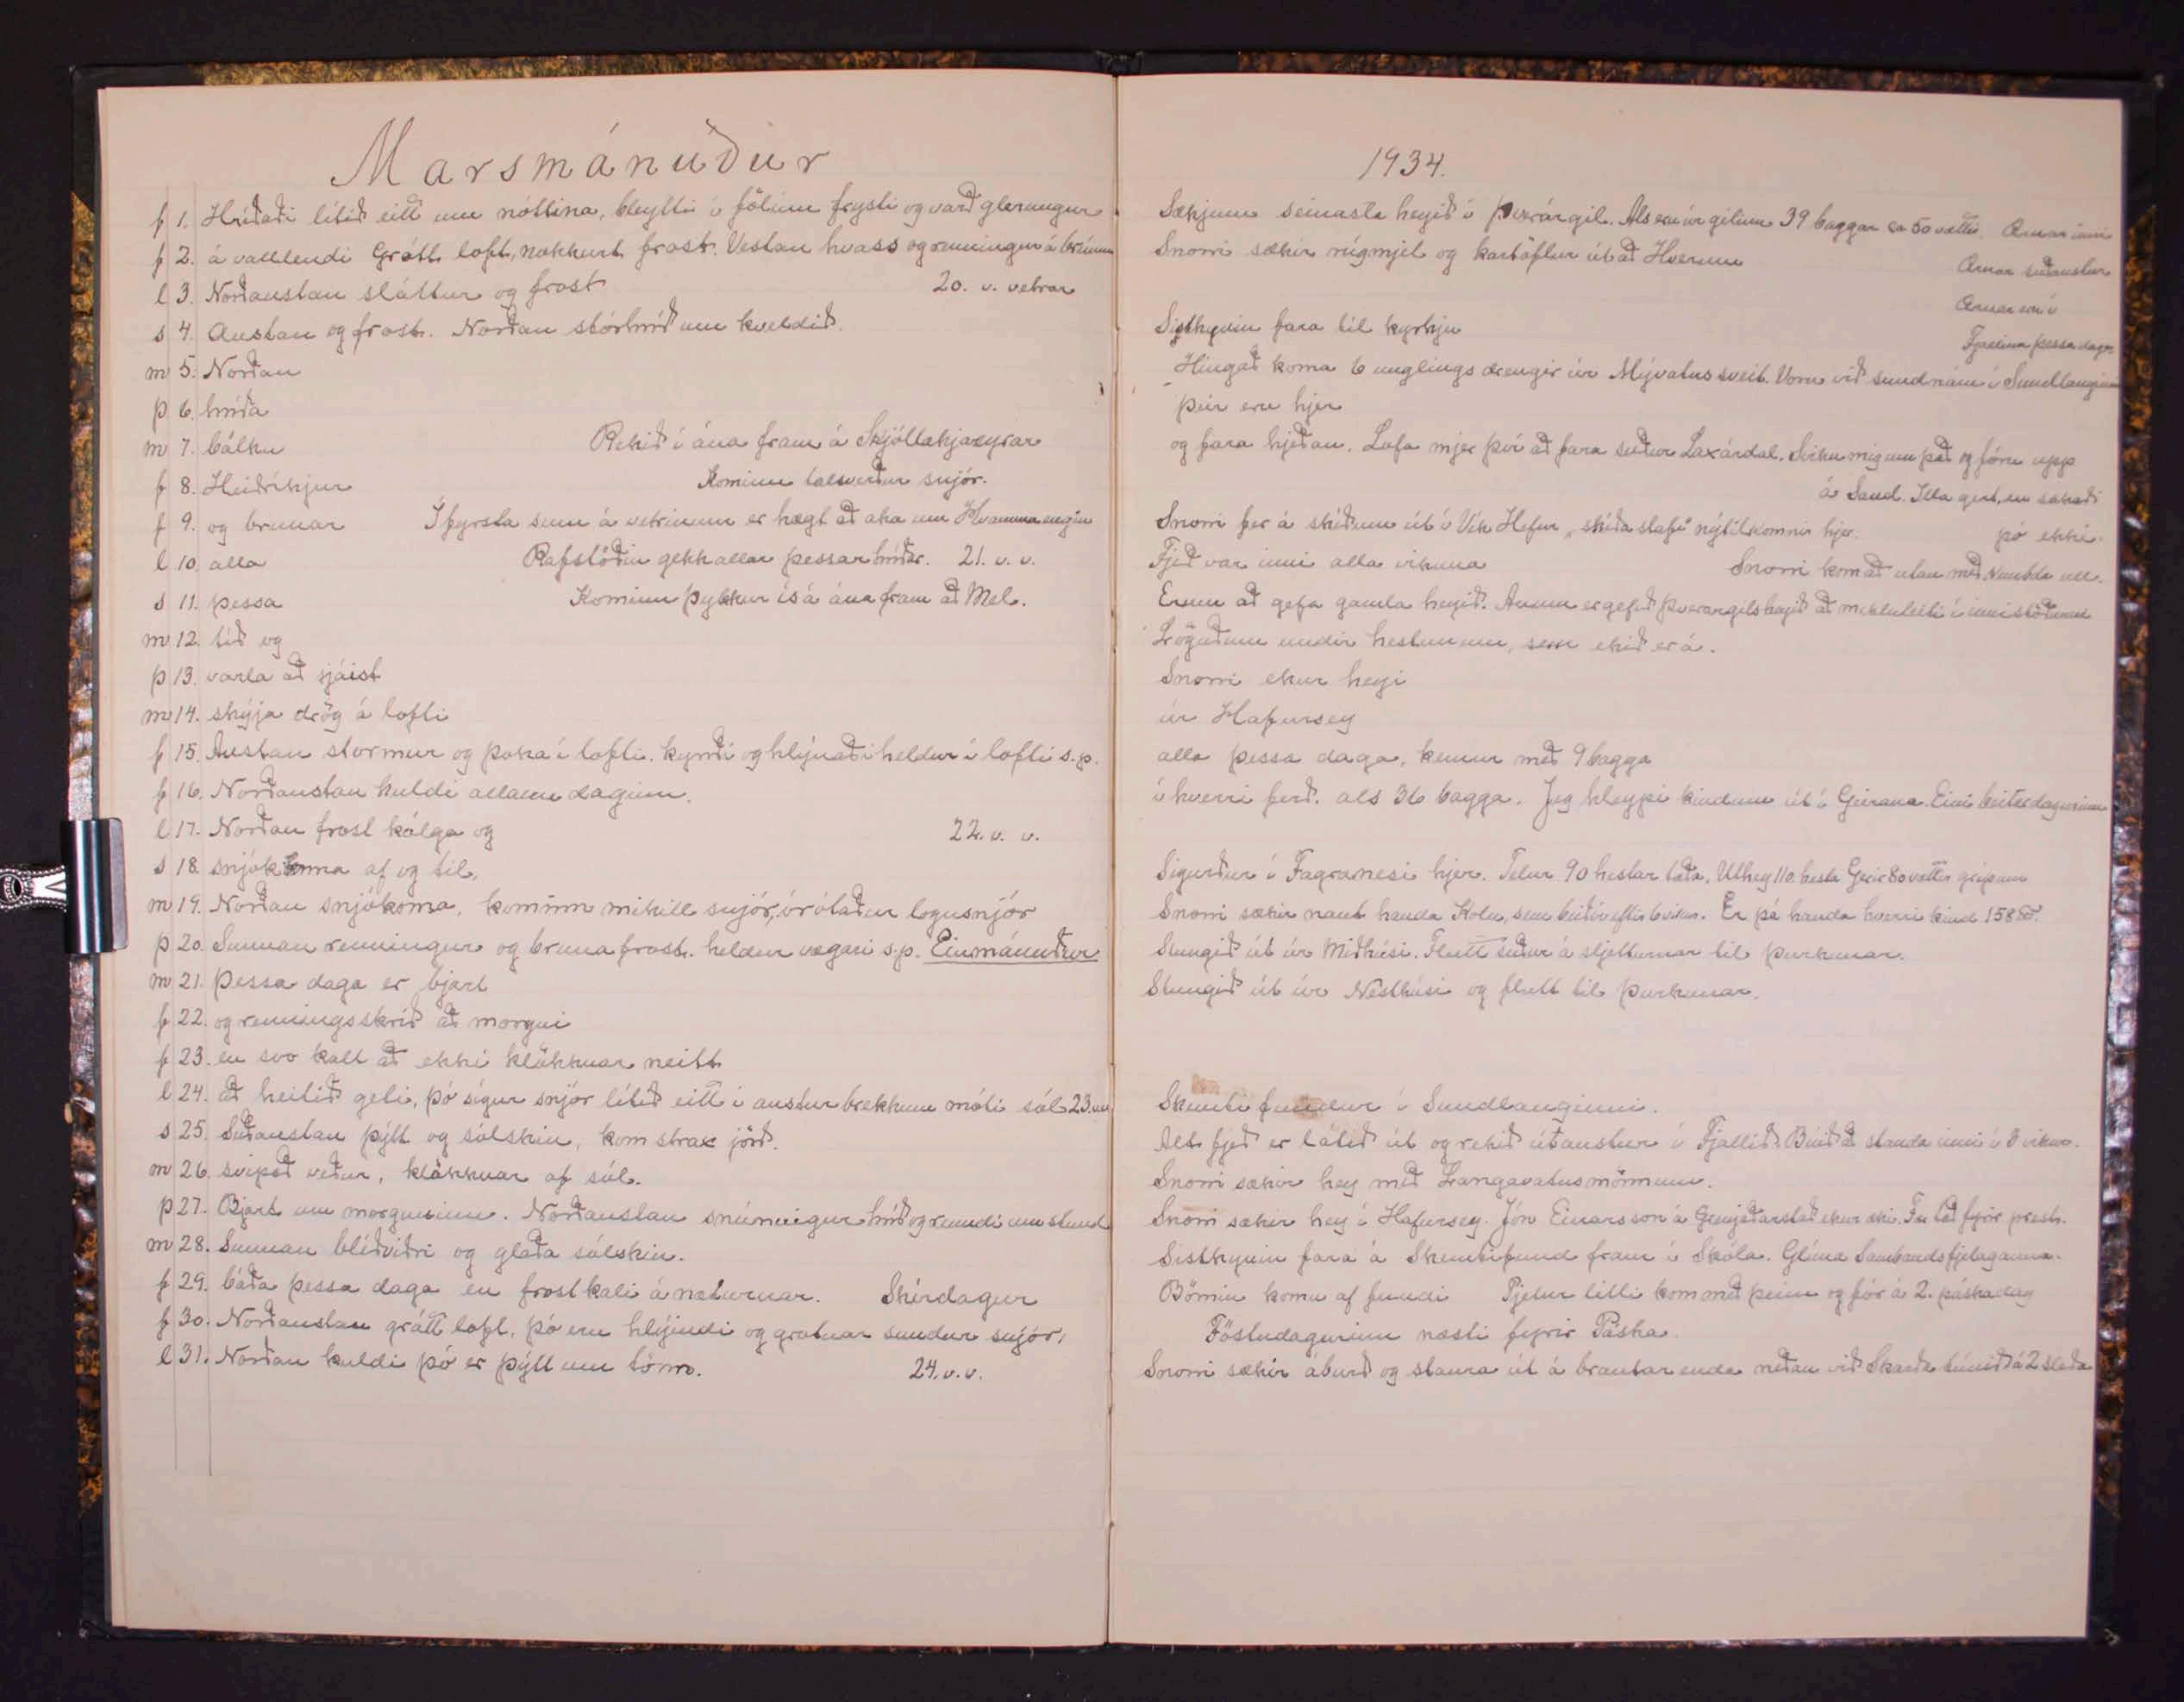 Marsmánuður
f 1. Hríðaði lítið eitt um nóttina, bleytti í fölinu frysti og varð glerungur
f 2. á valllendi Grátt loft, nokkurt frost. Vestan hvass og renningur á brúnum
l 3. Norðaustan sláttur og frost 20. v. vetrar
s 4. Austan og frost. Norðan stórhríð um kveldið.
m 5. Norðan
þ 6. hríða
m 7. bálku Rekið í ána fram á Skjóllækjareyrar
f 8. Heiðríkjur Kominn talsverður snjór.
f 9. og brunar Í fyrsta sinn á vetrinum er hægt að aka um Hvammaengin
l 10. alla Rafstöðin gekk allar þessar hríðar. 21. v. v.
s 11. þessa Kominn þykkur ís á ána fram að Mel.
m 12. tíð og
þ 13. varla að sjáist
m 14. skýja drög á lofti
f 15. Austan stormur og þoka í lofti. kyrrði og hlýnaði heldur í lofti s.p.
f 16. Norðaustan kuldi allann daginn.
l 17. Norðan frost kálga og 22. v. v.
s 18. snjók af og til,
m 19. Norðan snjókoma, kominn mikill snjór, órótaður logusnjór
þ 20. Sunnan renningur og bruna frost. heldur vægari s.p. Einmánuður
m 21. Þessa daga er bjart
f 22. og renningsskrið að morgni
f 23. en svo kalt að ekki klökknar neitt
l 24. að heitið geti, þó sígur snjór lítið eitt í austur brekkum móti sól 23. v.v.
s 25. Suðaustan þýtt og sólskin, kom strax jörð.
m 26. svipað veður, klökknar af sól.
þ 27. Bjart um morguninn. Norðaustan snúningur hríð og renndi um stund
m 28. Sunnan blíðviðri og glaða sólskin.
f 29. báða þessa daga en frostkali á næturnar. Skírdagur
f 30. Norðaustan grátt loft, þó eru hlýindi og grotnar sundur snjór,
l 31. Norðan kuldi þó er þýtt um tömn. 24. v. v.
1934.
Sækjum seinasta heyið í Þverárgil. Als eru úr gilinu 39 baggar ca 50 vættir. Ærnar inni
Snorri sækir rúgmjel og kartöflur út að Hverum Ærnar suðaustur
Ærnar eru í
Systkynin fara til kyrkju Fjallinu þessa daga
Hingað koma 6 unglings drengir úr Mývatnssveit. Voru við sundnám í Sundlauginni
þeir eru hjer
og fara hjeðan. Lofa mjer því að fara suður Laxárdal. Sviku mig um það og fóru upp
á Sand. Illa gert, en sakaði
Snorri fer á skíðum út í Vík Hefur „skíða stafi" nýtilkomnir hjer. þó ekki.
Fjeð var inni alla vikuna Snorri kom að utan með kembda ull.
Erum að gefa gamla heyið. Ánum er gefið Þverárgilsheyið að mikluleiti í innistöðunni
Löguðum undir hestunum, sem ekið er á.
Snorri ekur heyi
úr Hafursey
alla þessa daga, kemur með 9 bagga
í hverri ferð. als 36 bagga. Jeg hleypi kindum út í Geirana. Eini beitardagurinn
Sigurður í Fagranesi hjer. Telur 90 hestar taða, Úthey 110 hesta Geir 80 vættir gripum
Snorri sækir naut handa Kolu, sem beiðir eftir 6 vikur. Er þá handa hverri kind 158 ℔.
Stungið út úr Miðhúsi. Flutt suður á sljetturnar til þurkunar.
Stungið út úr Nesthúsi og flutt til þurkunar.
Skemtifundur í Sundlauginni.
Alt fjeð er látið út og rekið útaustur í Fjallið. Búið að standa inni í 3 vikur.
Snorri sækir hey með Langavatnsmönnum.
Snorri sækir hey í Hafursey. Jón Einarsson á Grenjaðarstað ekur Fær tað fyrir prest.
Sistkynin fara á Skemtifund fram í Skóla. Glíma Sambandsfjelaganna.
Börnin koma af fundi Pjetur litli kom með þeim og fór á 2. páskadag
Föstudagurinn næsti fyrir Páska.
Snorri sækir áburð og staura út á brautarenda neðan við Skarða túnið á 2 sleða